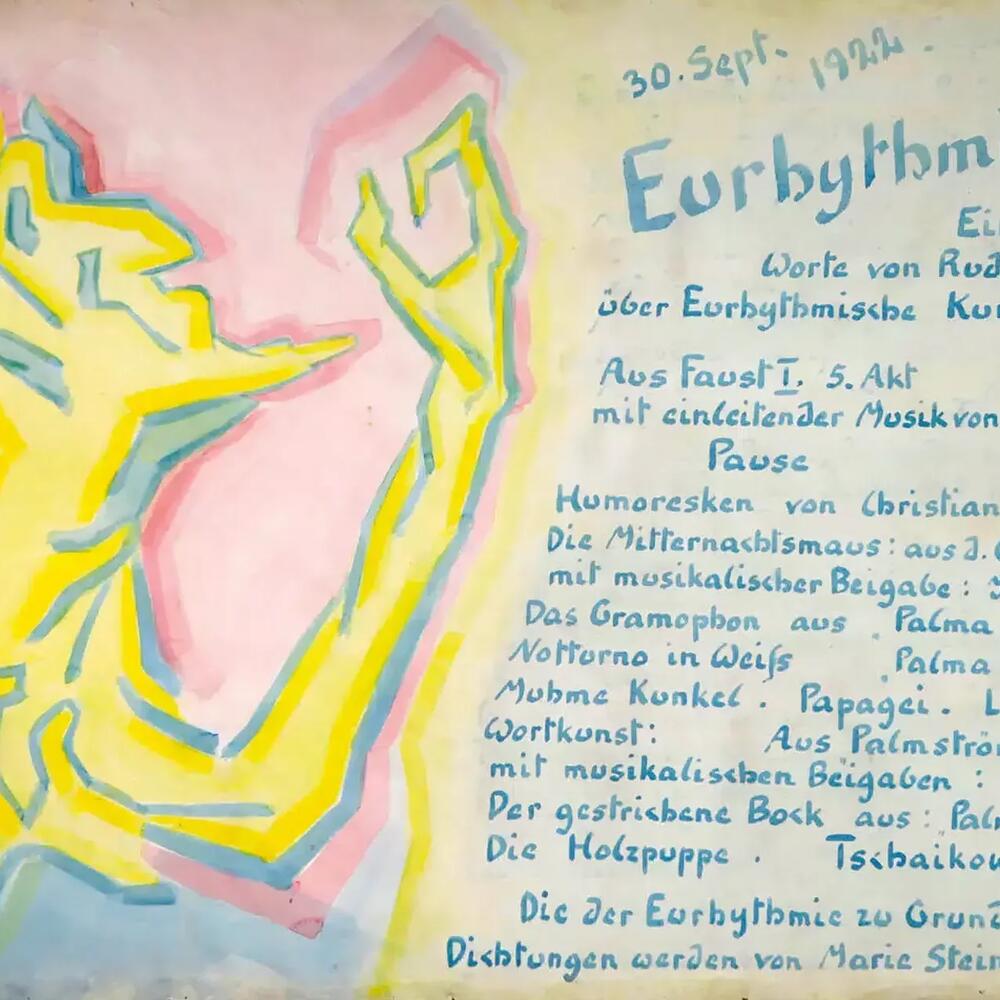 30. Sept. 1922.
Eurhythm
Ein
Worte von Rud
über Eurhythmische Kun
Aus Faust I. 5. Akt
mit einleitender Musik von
Pause
Humoresken von Christian
Die Mitternachtsmaus: aus J.
mit musikalischer Beigabe:
Das Gramophon aus „Palma
Notturno in Weiss „Palma
Muhme Kunkel. Papagei. L
Wortkunst: Aus Palmströ
mit musikalischen Beigaben:
Der gestrichene Bock aus: Palm
Die Holzpuppe. Tschaikow
Die der Eurhythmie zu Grund
Dichtungen werden von Marie Stein